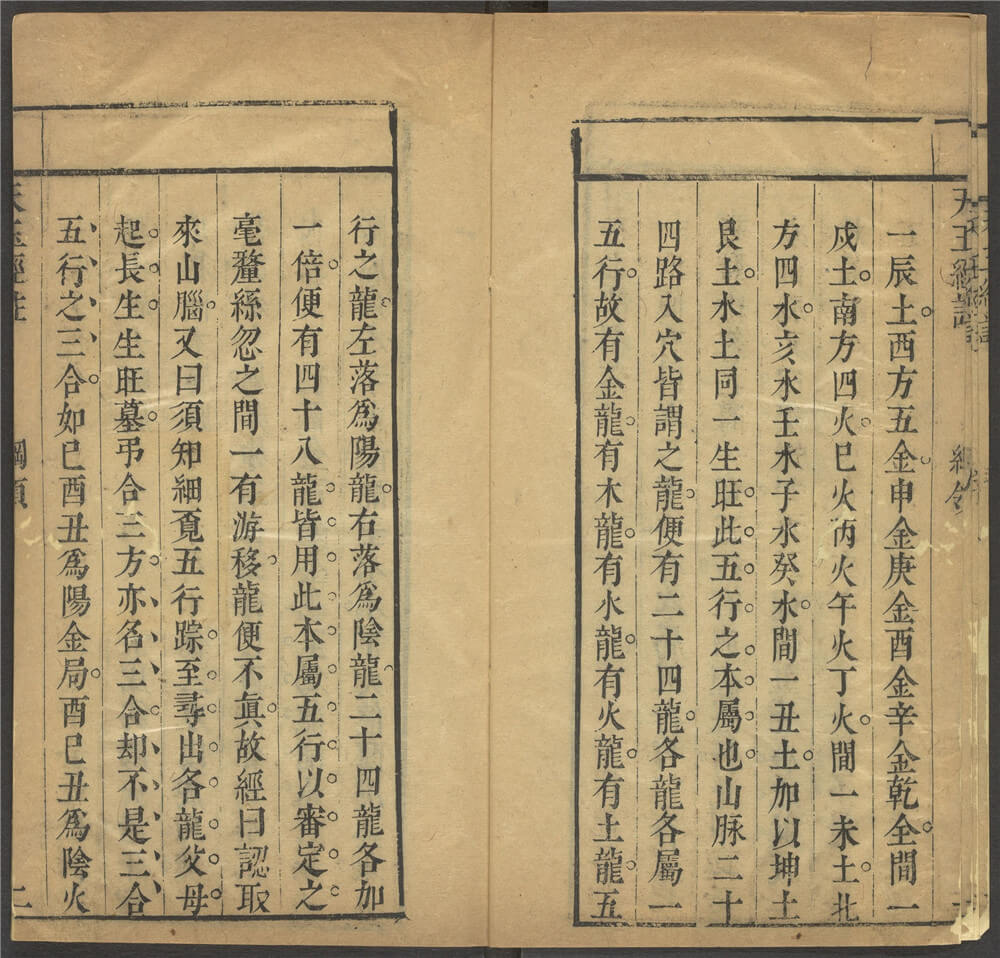 一辰土西方五金申金庚金酉金辛金乾全間一
戍土南方四火巳火丙火午火丁火間一未土北
方四水亥水壬水子水癸水間一丑土加以坤土
艮土水土同一生旺此五行之本屬也山脉二十
四路入穴皆謂之龍便有二十四龍各龍各屬一
五行故有金龍有木龍有水龍有火龍有土龍五
行之龍左落爲陽龍右落爲陰龍二十四龍各加
一倍便有四十八龍皆用此本屬五行以審定之
毫釐絲忽之間一有游移龍便不眞故經曰認取
來山腦又曰須知細覔五行踪至尋出各龍父母
起長生生旺墓弔合三方亦名三合却不是三合
五行之三合如巳酉丑爲陽金局酉巳丑爲陰火
天玉經註
綱領
二